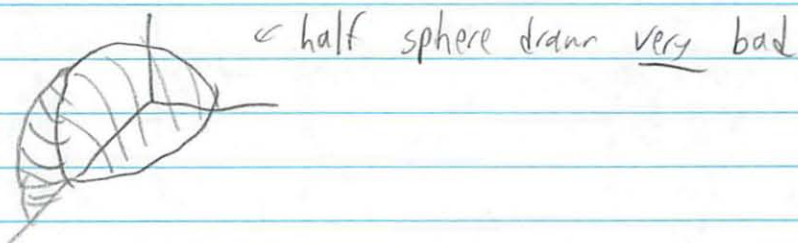 ← half sphere drawn very bad